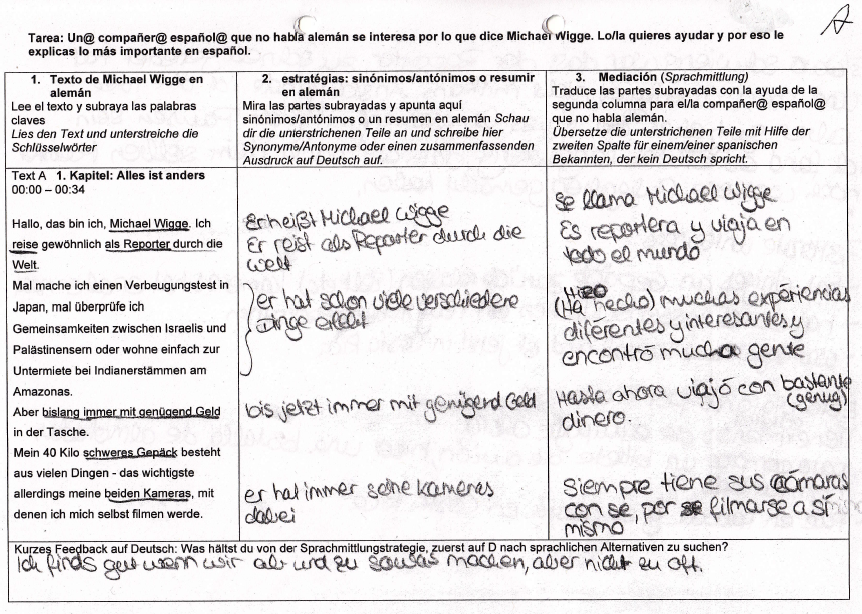 A
Tarea: Un@ compañer@ español@ que no habla alemán se interesa por lo que dice Michael Wigge. Lo/la quieres ayudar y por eso le
explicas lo más importante en español.
1. Texto de Michael Wigge en
alemán
Lee el texto y subraya las palabras
claves
Lies den Text und unterstreiche die
Schlüsselwörter
2. estratégias: sinónimos/antónimos o resumir
en alemán
Mira las partes subrayadas y apunta aquí
sinónimos/antónimos o un resumen en alemán Schau
dir die unterstrichenen Teile an und schreibe hier
Synonyme/Antonyme oder einen zusammenfassenden
Ausdruck auf Deutsch auf.
3. Mediación (Sprachmittlung)
Traduce las partes subrayadas con la ayuda de la
segunda columna para el/la compañer@ español@
que no habla alemán.
Übersetze die unterstrichenen Teile mit Hilfe der
zweiten Spalte für einem/einer spanischen
Bekannten, der kein Deutsch spricht.
Text A 1. Kapitel: Alles ist anders
00:00 – 00:34
Hallo, das bin ich, Michael Wigge. Ich
reise gewöhnlich als Reporter durch die
Welt.
Mal mache ich einen Verbeugungstest in
Japan, mal überprüfe ich
Gemeinsamkeiten zwischen Israelis und
Palästinensern oder wohne einfach zur
Untermiete bei Indianerstämmen am
Amazonas.
Aber bislang immer mit genügend Geld
in der Tasche.
Mein 40 Kilo schweres Gepäck besteht
aus vielen Dingen - das wichtigste
allerdings meine beiden Kameras, mit
denen ich mich selbst filmen werde.
Er heißt Michael Wigge
Er reist als Reporter durch die
Welt
er hat schon viele verschiedene
Dinge erlebt
bis jetzt immer mit genügend Geld
er hat immer seine Kameras
dabei
Se llama Michael Wigge
Es reportera y viaja en
todo el mundo
Hizo
(Ha hecho) muchas expériencias
diferentes y interesantes y
encontró mucha gente
Hasta ahora viajó con bastante
(genug)
dinero.
Siempre tiene sus cámaras
con se, por se filmarse a sí
mismo
Kurzes Feedback auf Deutsch: Was hältst du von der Sprachmittlungstrategie, zuerst auf D nach sprachlichen Alternativen zu suchen?
Ich finds gut wenn wir ab und zu sowas machen, aber nicht zu oft.